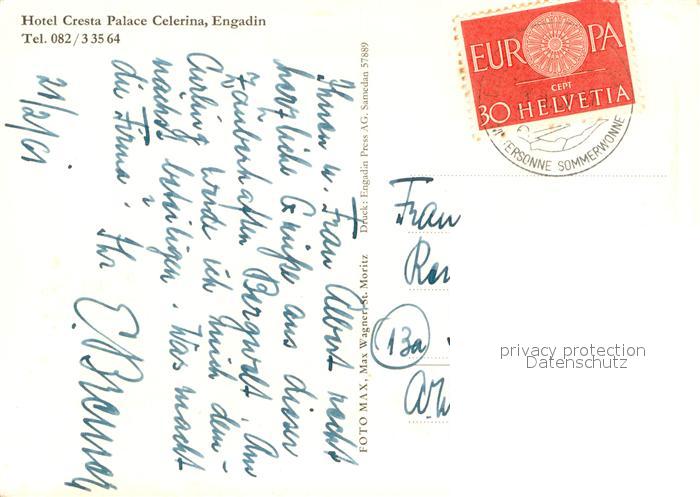 Hotel Cresta Palace Celerina, Engadin
Tel. 082 / 3 35 64
21/2/61
Ihnen u. Frau Albert recht
herzliche Grüße aus dieser
zauberhaften Bergwelt. Am
Curling werde ich mich dem-
nächst beteiligen. Was macht
die Firma? Ihr
FOTO MAX, Max Wagner, St. Moritz Druck: Engadin Press AG, Samedan 57889
EUROPA
CEPT
30 HELVETIA
TERSONNE SOMMERWONNE
Frau
13a
privacy protection
Datenschutz